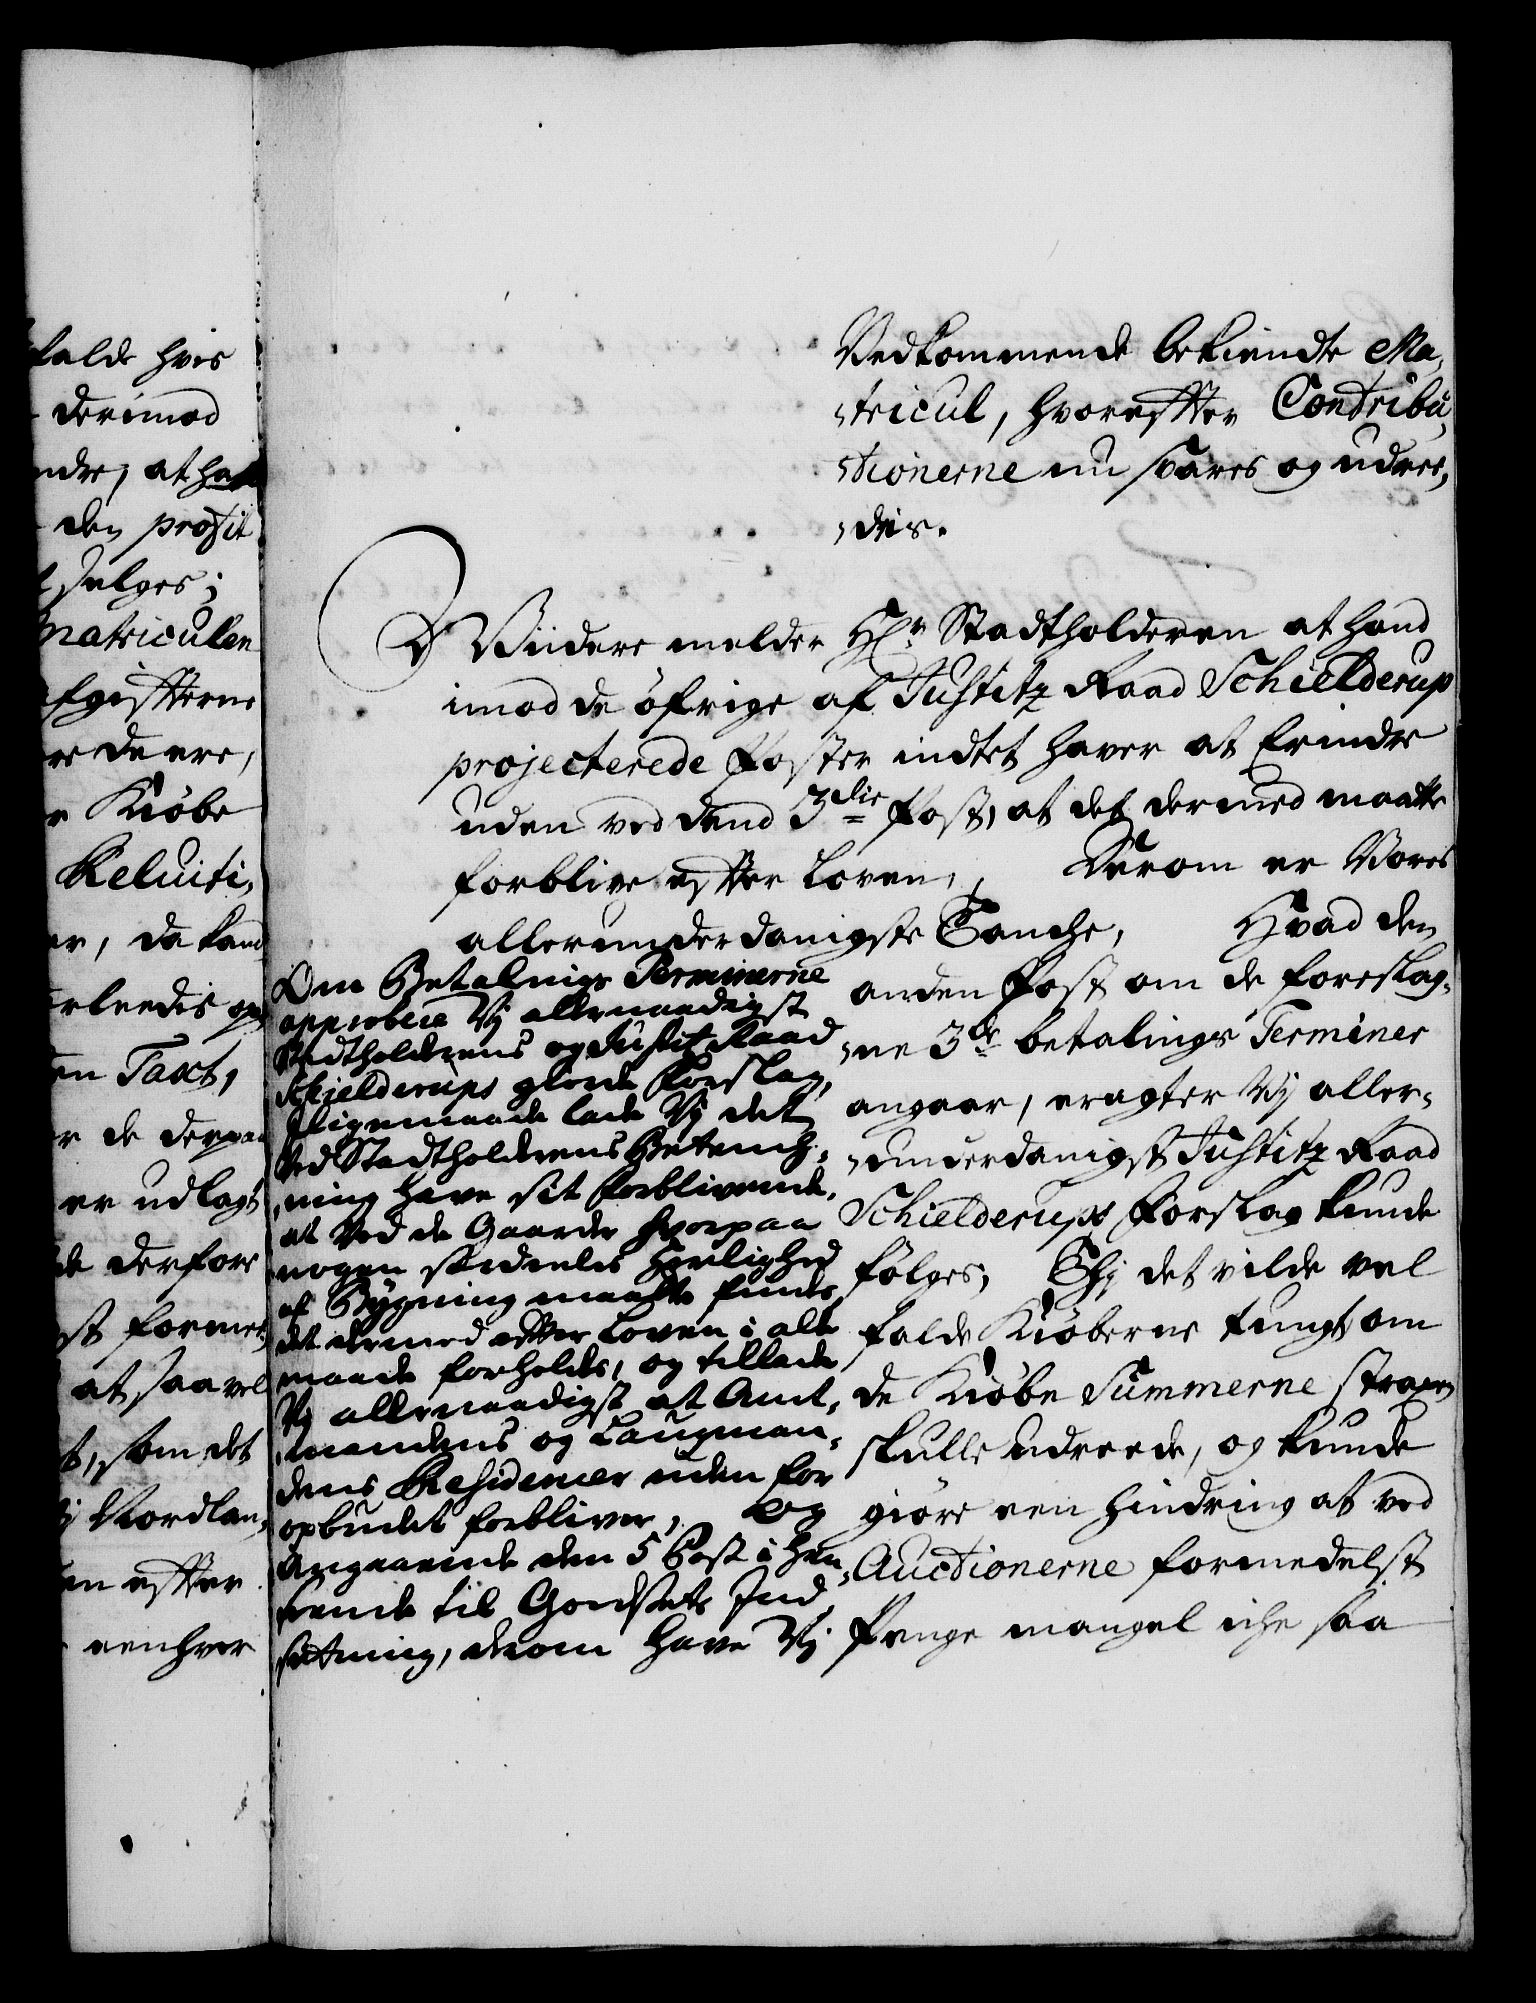 kalde hvis
derimod
ndre, at ha
den profit
selges;
matriculen
afgiffterne
re de ere,
Kiøbe
Reluiti,
er, da kand
erleedis op
en Taxt,
er de derpaa
er udlagt
de derfore
st formed,
at saavel
t, som det
i Nordlan,
en effter
eenhver
Vedkommende bekiendte Ma,
,tricul, hvoreffter Contribu,
,tionerne nu svares og udree,
,des.
Viidere melder Hr. Stadtholderen at hand
imod de öfrige af Justitz Raad Schielderup
projecterede Poster indtet haver at Erindre
uden ved dend 3die Post, at det dermed maatte
forblive effter Loven, Derom er Vores
allerunderdanigste Tancke, Hvad den
anden Post om de foreslag,
,ne 3de betalings Terminer
angaar, eragter Vj aller,
,underdanigst Justitz Raad
Schielderups Forslag kunde
følges, Thj det vilde vel
falde Kiöberne tungt om
de Kiöbe Summerne strax
skulle udreede, og kunde
giöre een hindring at ved
Auctionerne formedelst
Penge mangel icke saa
Om Betalings Terminerne
approbere Vj allernaadigst
Stadtholderens og Justitz Raad
Schielderups giorde Forslag,
Ligemaade lade Vj det
ved Stadtholderens Betenck,
,ning have sit forblivende,
at ved de Gaarder hvorpaa
nogen særdeles Herlighed
af Bygning maatte findes
det dermed effter Loven i alle
maade forholdes, og tillade
Vj allernaadigst at Amt,
,mandens og Laugman,
dens Residencer uden for
opbudet forbliver, Og
Angaaende den 5 Post i hen,
seende til Godsets Ind,
sætning, derom have Vj